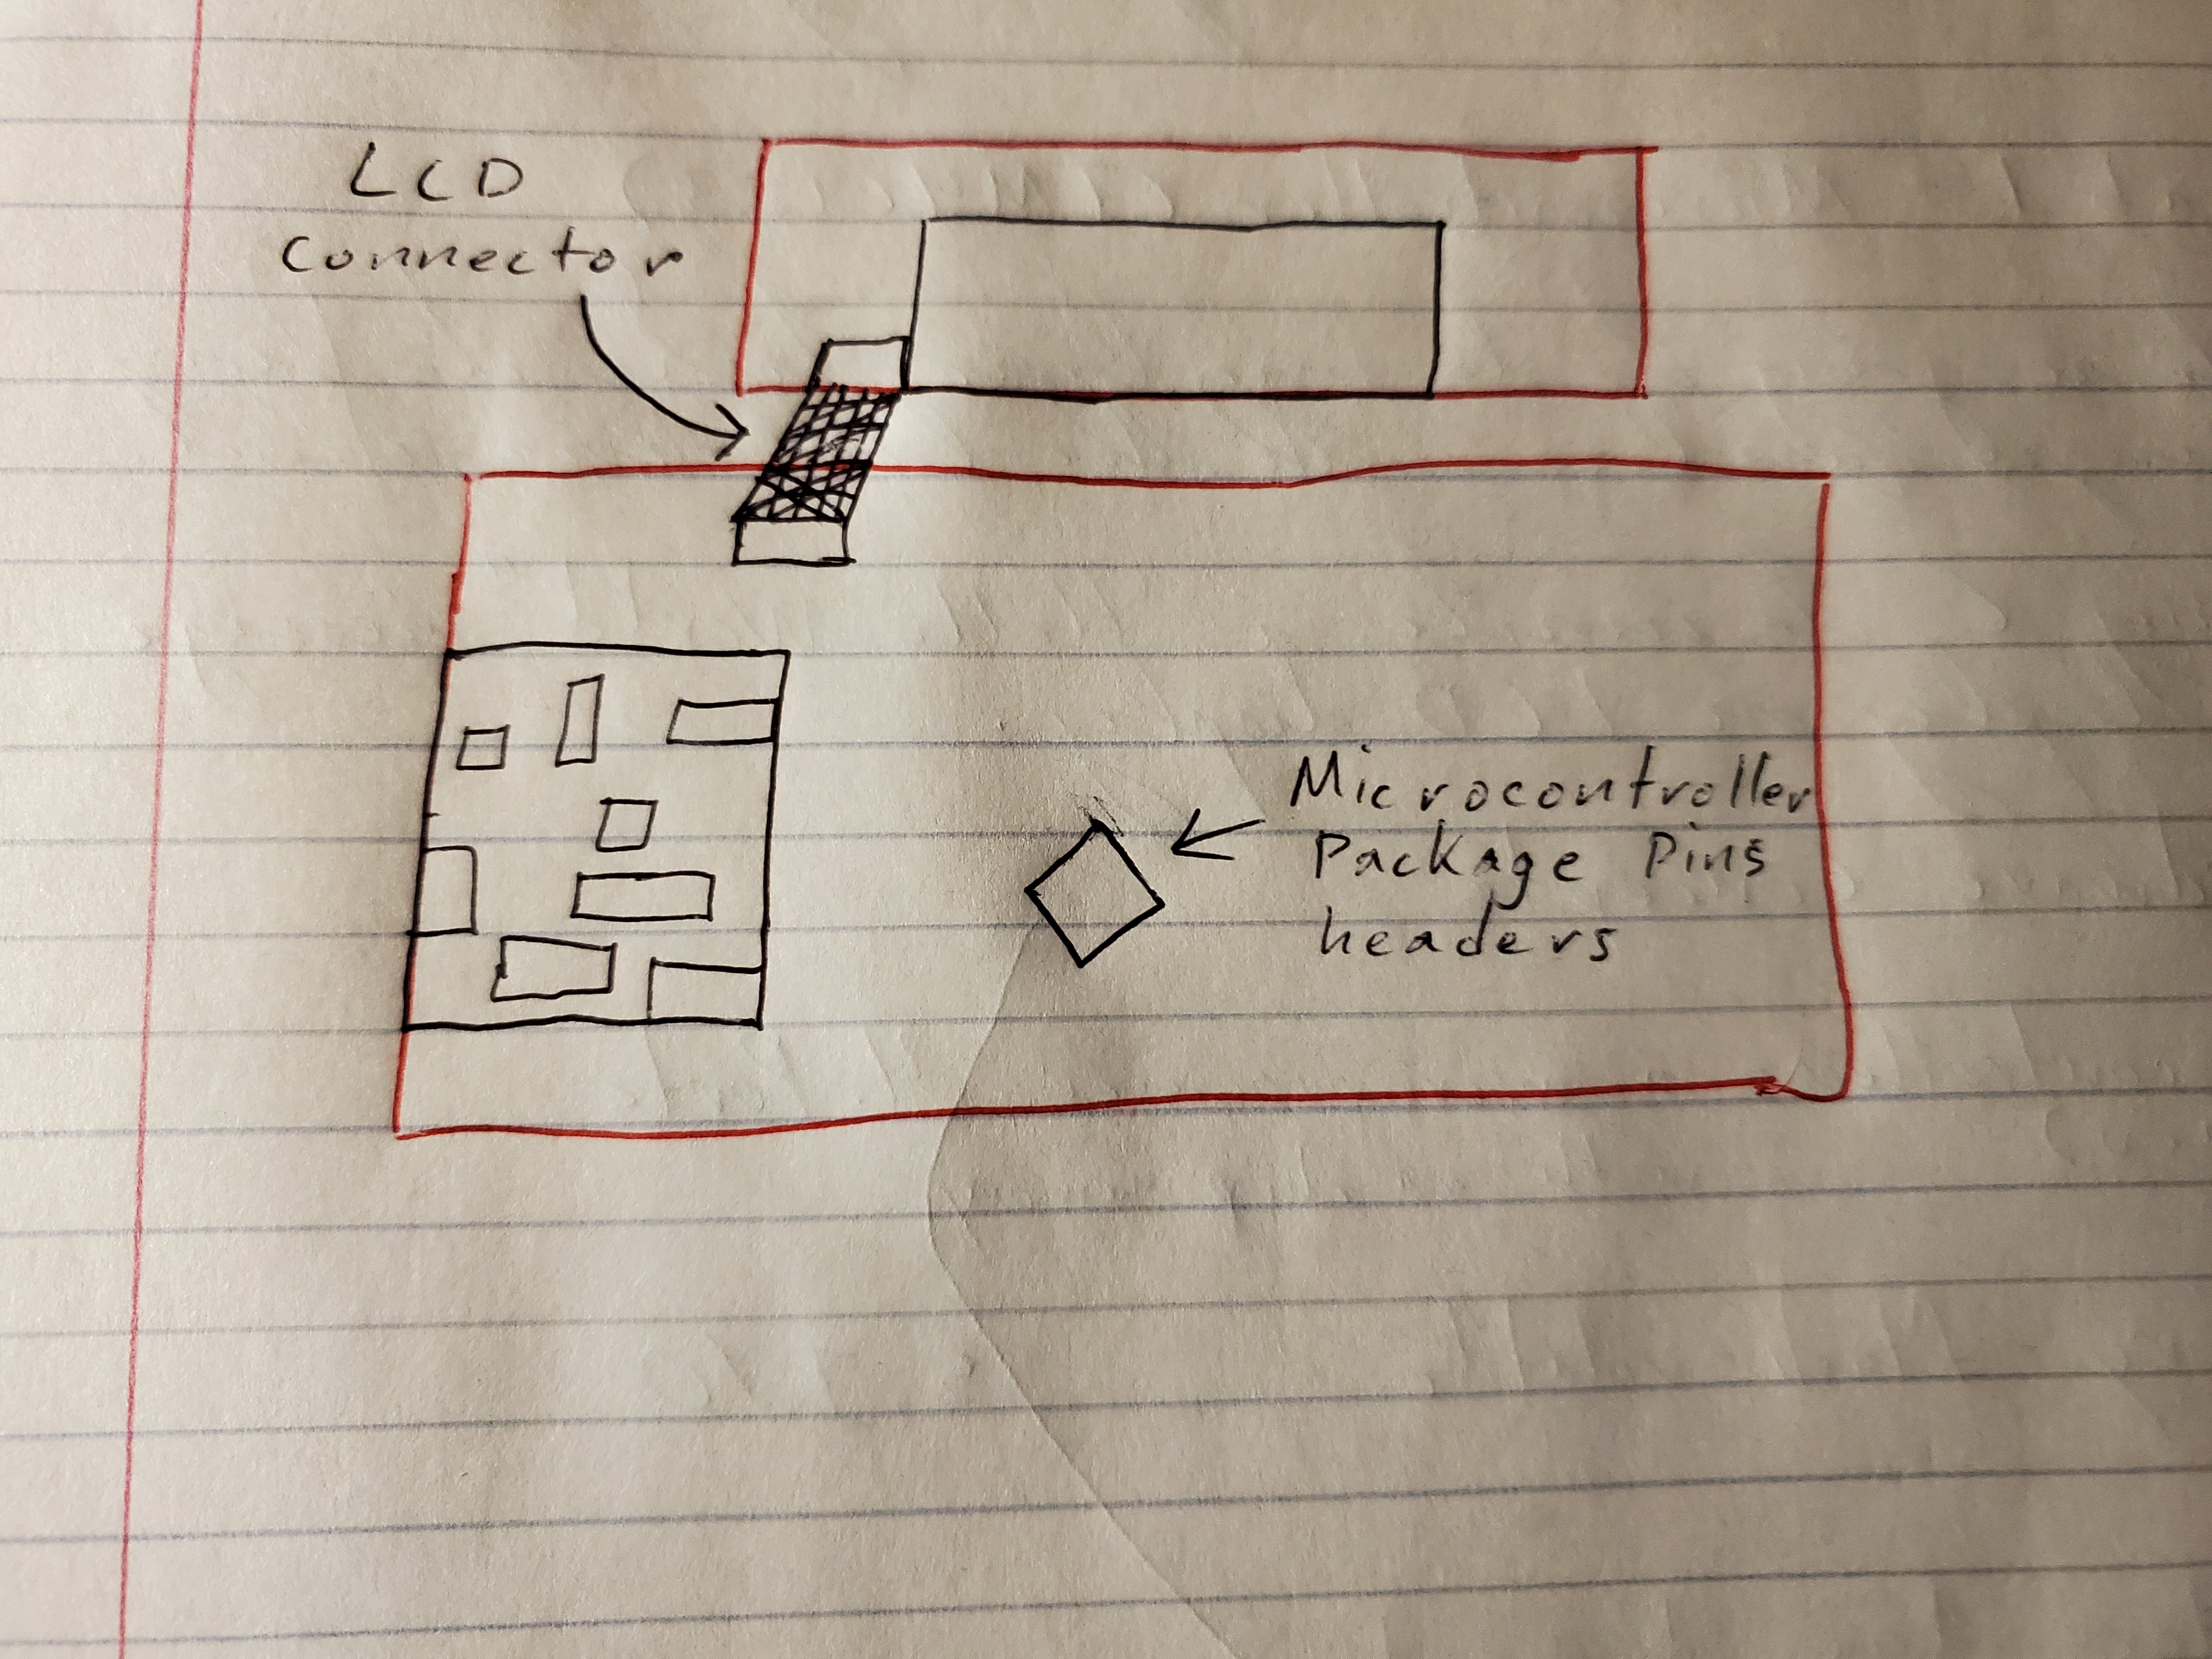 LCD
connector
Microcontroller
Package Pins
headers